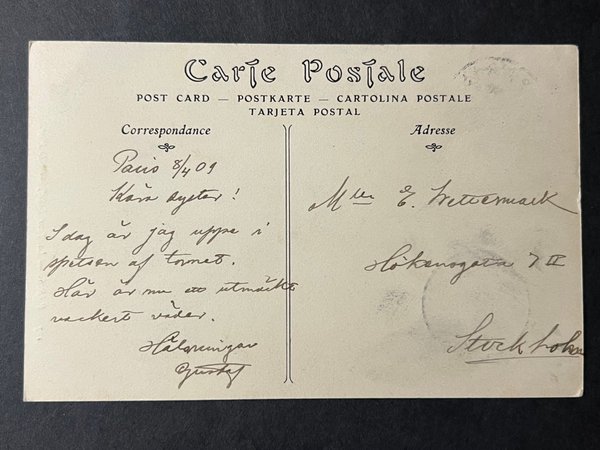 Carte Postale
POST CARD — POSTKARTE — CARTOLINA POSTALE
TARJETA POSTAL
Correspondance
Paris 8/4 09
Kära syster!
I dag är jag uppe i
spetsen af tornet.
Här är nu ett utmärkt
vackert väder.
Hälsningar
Gustaf
Adresse
Mlle E. Wettermark
Hökensgata 7 II
Stockholm